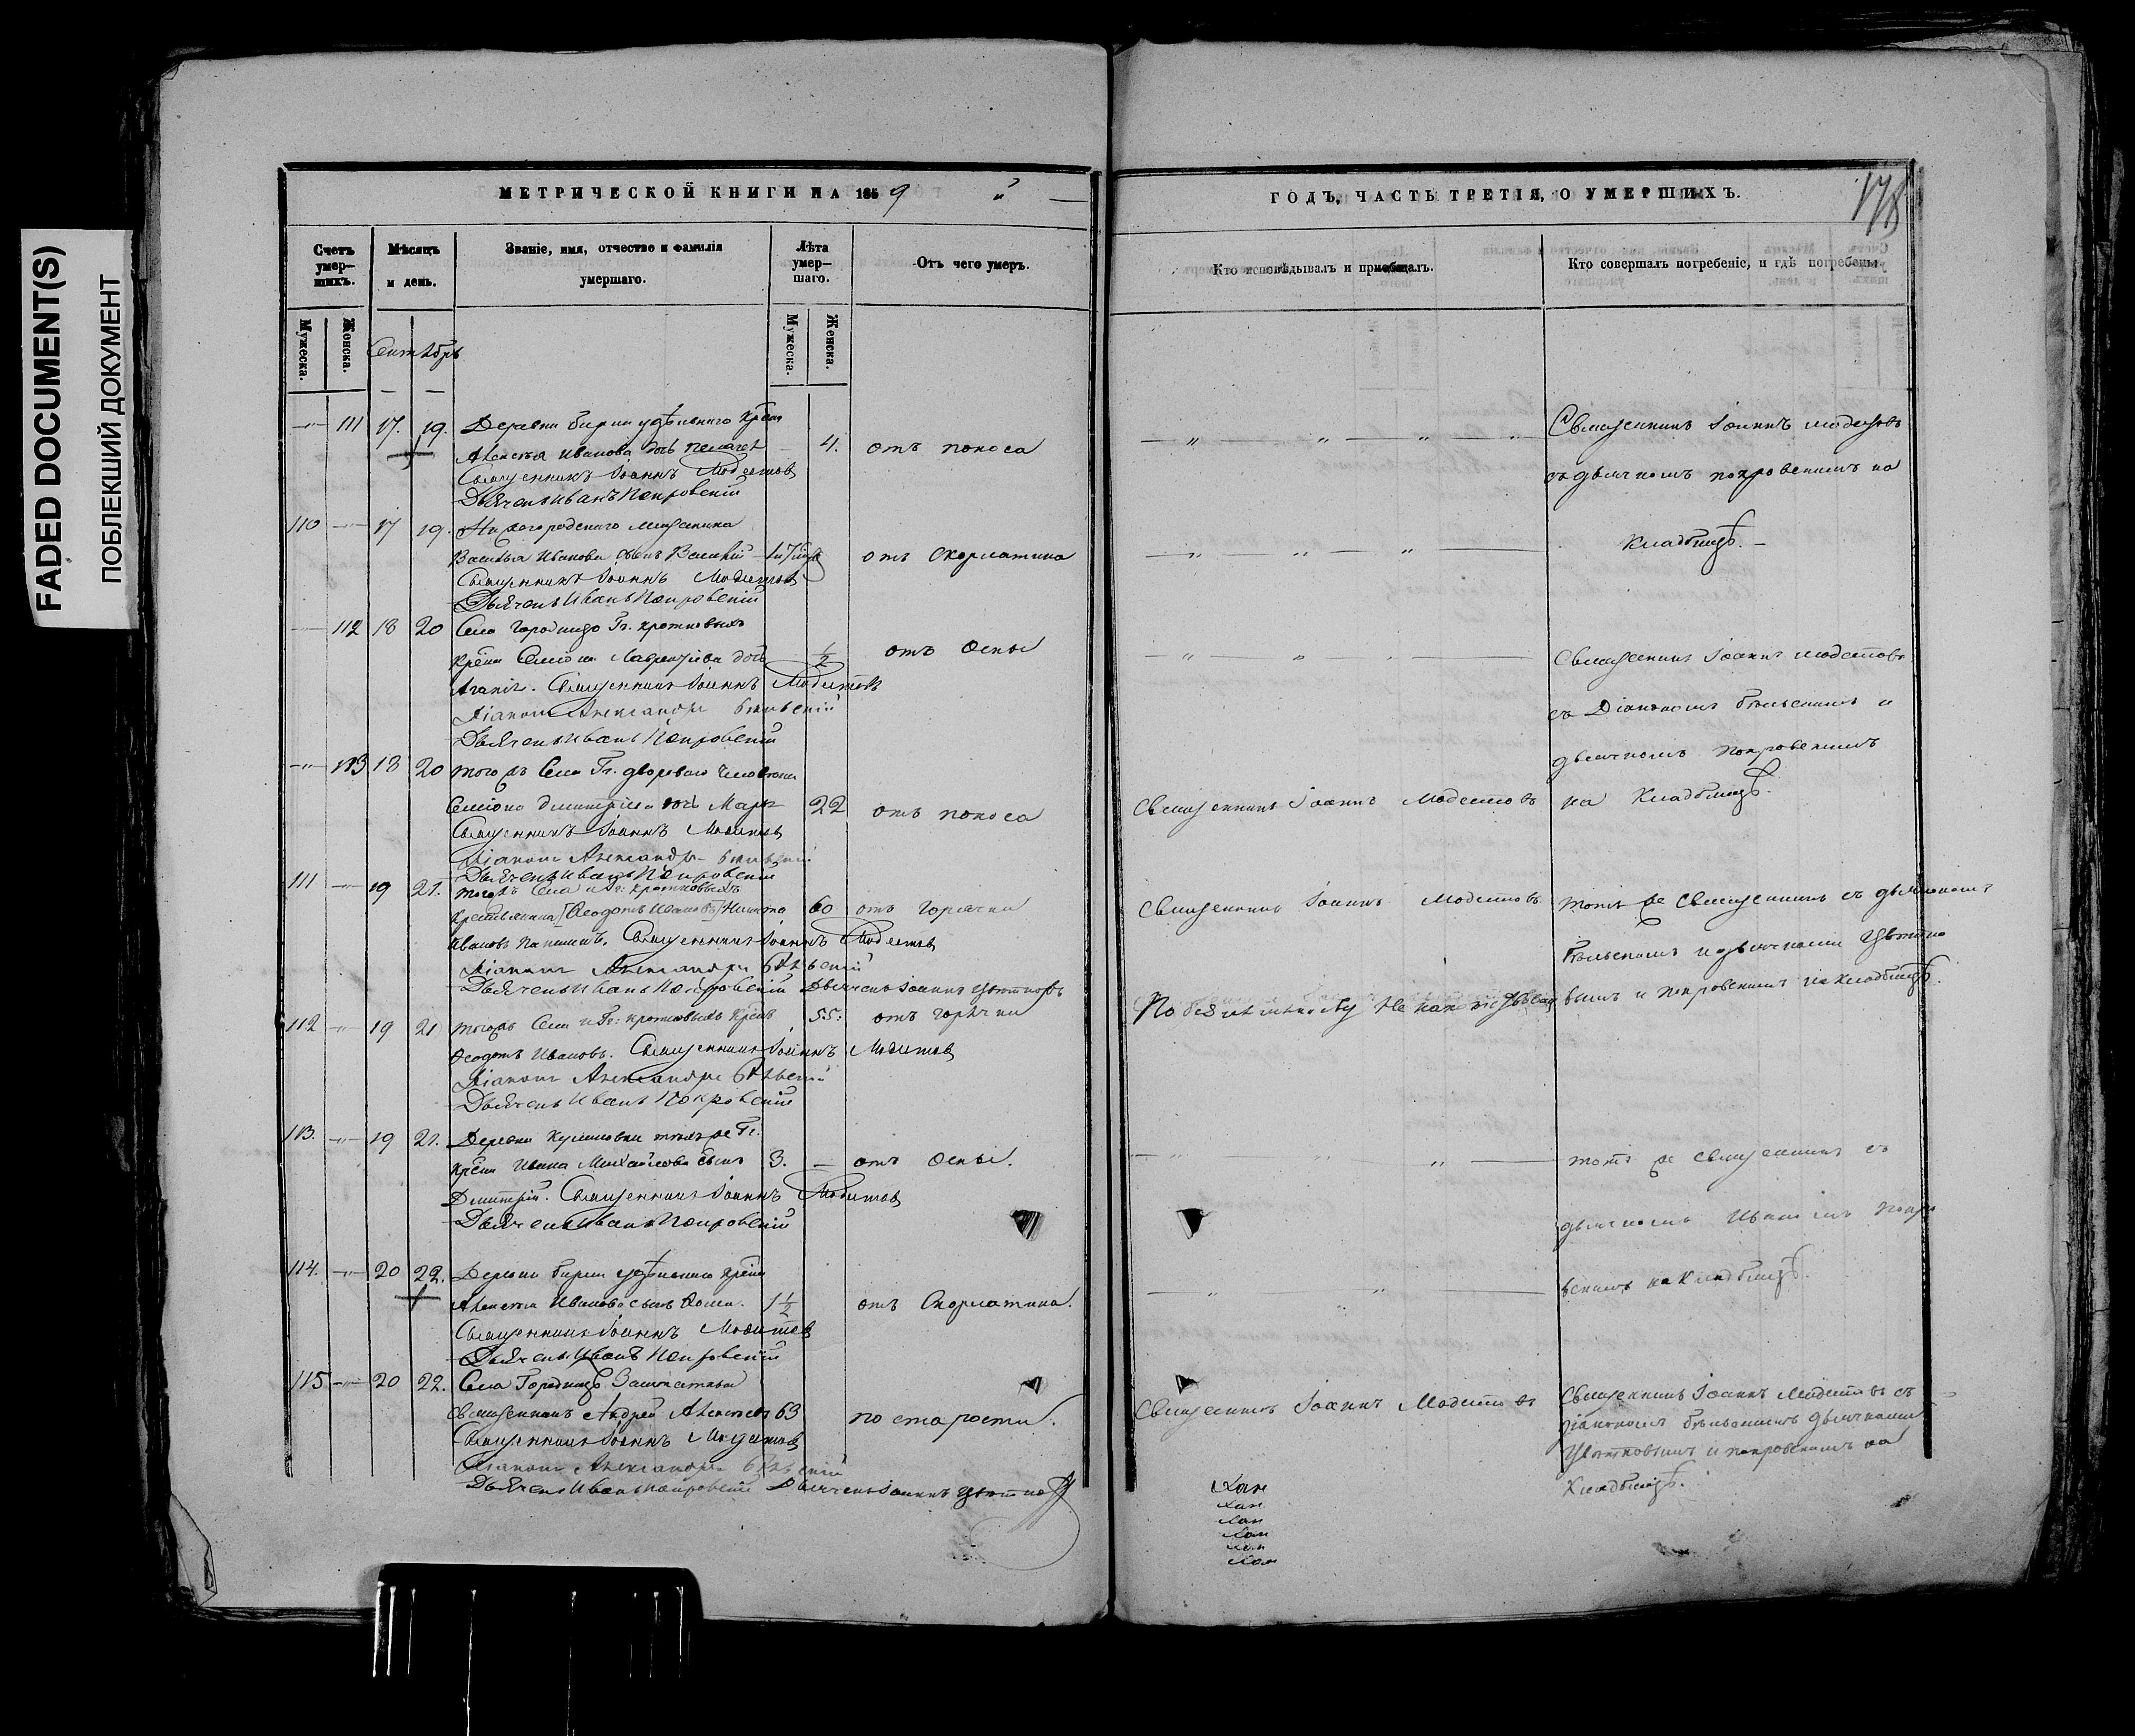 FADED DOCUMENT(S)
ПОБЛЕКШИЙ ДОКУМЕНТ
МЕТРИЧЕСКОЙ КНИГИ НА 1859
Счетъ умер-шихъ.
Мѣсяцъ и день.
Званіе, имя, отчество и фамилія умершаго.
Лѣта умер-шаго.
Отъ чего умеръ.
Мужеска.
Женска.
Мужеска.
Женска.
Сентябрь
111 17. 19. Деревни удѣльнаго Крест
Алексѣя Иванова дочь Пелагея 4. отъ поноса
Священникъ Іоаннъ Модестовъ
Дьячекъ Иванъ Покровскій
110 17 19. Нижегородскаго мещанина
Василья Иванова сынъ Василій отъ Скорлатина
Священникъ Іоаннъ Модестовъ
Дьячекъ Иванъ Покровскій
112 18 20 Села Городища Гг. Кротковыхъ
Крест Семіона Лаврентіева дочь 1/2 отъ Оспы
Священникъ Іоаннъ Модестовъ
Діаконъ Александръ
Дьячекъ Иванъ Покровскій
113 18 20 того жъ Села Гг. двороваго человека
Семіона Дмитріева дочь Марья 22 отъ поноса
Священникъ Іоаннъ Модестовъ
Діаконъ Александръ
Дьячекъ Иванъ Покровскій
111 19 21. того жъ Села и Гг. Кротковыхъ
Крестьянина Ѳеодотъ Ивановъ Никита 60 отъ Горячки
Ивановъ Священникъ Іоаннъ Модестовъ
Діаконъ Александръ
Дьячекъ Иванъ Покровскій Дьячекъ Іоаннъ Цвѣтковъ
112 19 21 того жъ Села и Гг. Кротковыхъ Крест 55. отъ горячки
Ѳеодотъ Ивановъ. Священникъ Іоаннъ Модестовъ
Діаконъ Александръ
Дьячекъ Иванъ Покровскій
113. 19 21. Деревни тѣхъ же Гг.
Крест Ивана Михайлова сынъ 3. отъ Оспы.
Дмитрій. Священникъ Іоаннъ Модестовъ
Дьячекъ Иванъ Покровскій
114. 20 22. Деревни удѣльнаго Крест
Алексѣя Иванова сынъ Ѳома. 1 1/2 отъ Скорлатина.
Священникъ Іоаннъ Модестовъ
Дьячекъ Иванъ Покровскій
115 20 22. Села Городищъ Заштатный
Священникъ Андрей Алексѣевъ 63 по старости.
Священникъ Іоаннъ Модестовъ
Діаконъ Александръ
Дьячекъ Иванъ Покровскій Дьячекъ Іоаннъ Цвѣтковъ
ГОДЪ, ЧАСТЬ ТРЕТІЯ, О УМЕРШИХЪ.
178
Кто исповѣдывалъ и пріобщалъ.
Кто совершалъ погребеніе, и гдѣ погребены.
Священникъ Іоаннъ Модестовъ
съ дьячкомъ Покровскимъ на
Кладбищѣ.
Священникъ Іоаннъ Модестовъ
съ Діакономъ и
дьячкомъ Покровскимъ
Священникъ Іоаннъ Модестовъ на Кладбищѣ.
Священникъ Іоаннъ Модестовъ тотъ же Священникъ съ діакономъ
и дьячками Цвѣтко
вымъ и Покровскимъ на кладбищѣ.
тотъ же Священникъ съ
дьячкомъ Иваномъ Покро
вскимъ на Кладбищѣ.
Священникъ Іоаннъ Модестовъ Священникъ Іоаннъ Модестовъ съ
діакономъ дьячками
Цвѣтковымъ и Покровскимъ на
Кладбищѣ.